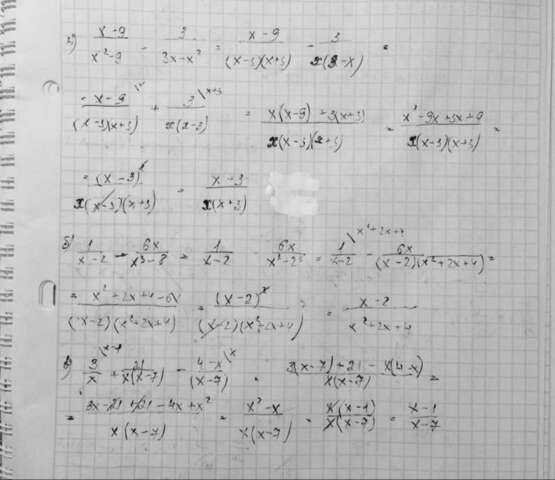 а) (x-9)/(x²-9) - 3/(3x-x²) = (x-9)/((x-3)(x+3)) - 3/(x(3-x)) =
= (x-9)/((x-3)(x+3)) + 3/(x(x-3)) = (x(x-9)+3(x+3))/(x(x-3)(x+3)) = (x²-9x+3x+9)/(x(x-3)(x+3)) =
= (x-3)²/(x(x-3)(x+3)) = (x-3)/(x(x+3))
б) 1/(x-2) - 6x/(x³-8) = 1/(x-2) - 6x/(x³-2³) = 1/(x-2) \x²+2x+4 - 6x/((x-2)(x²+2x+4)) =
= (x²+2x+4-6x)/((x-2)(x²+2x+4)) = (x-2)²/((x-2)(x²+2x+4)) = (x-2)/(x²+2x+4)
в) 3/x \x-7 + 21/(x(x-7)) - (4-x)/(x-7) \x = (3(x-7)+21-x(4-x))/(x(x-7)) =
= (3x-21+21-4x+x²)/(x(x-7)) = (x²-x)/(x(x-7)) = (x(x-1))/(x(x-7)) = (x-1)/(x-7)